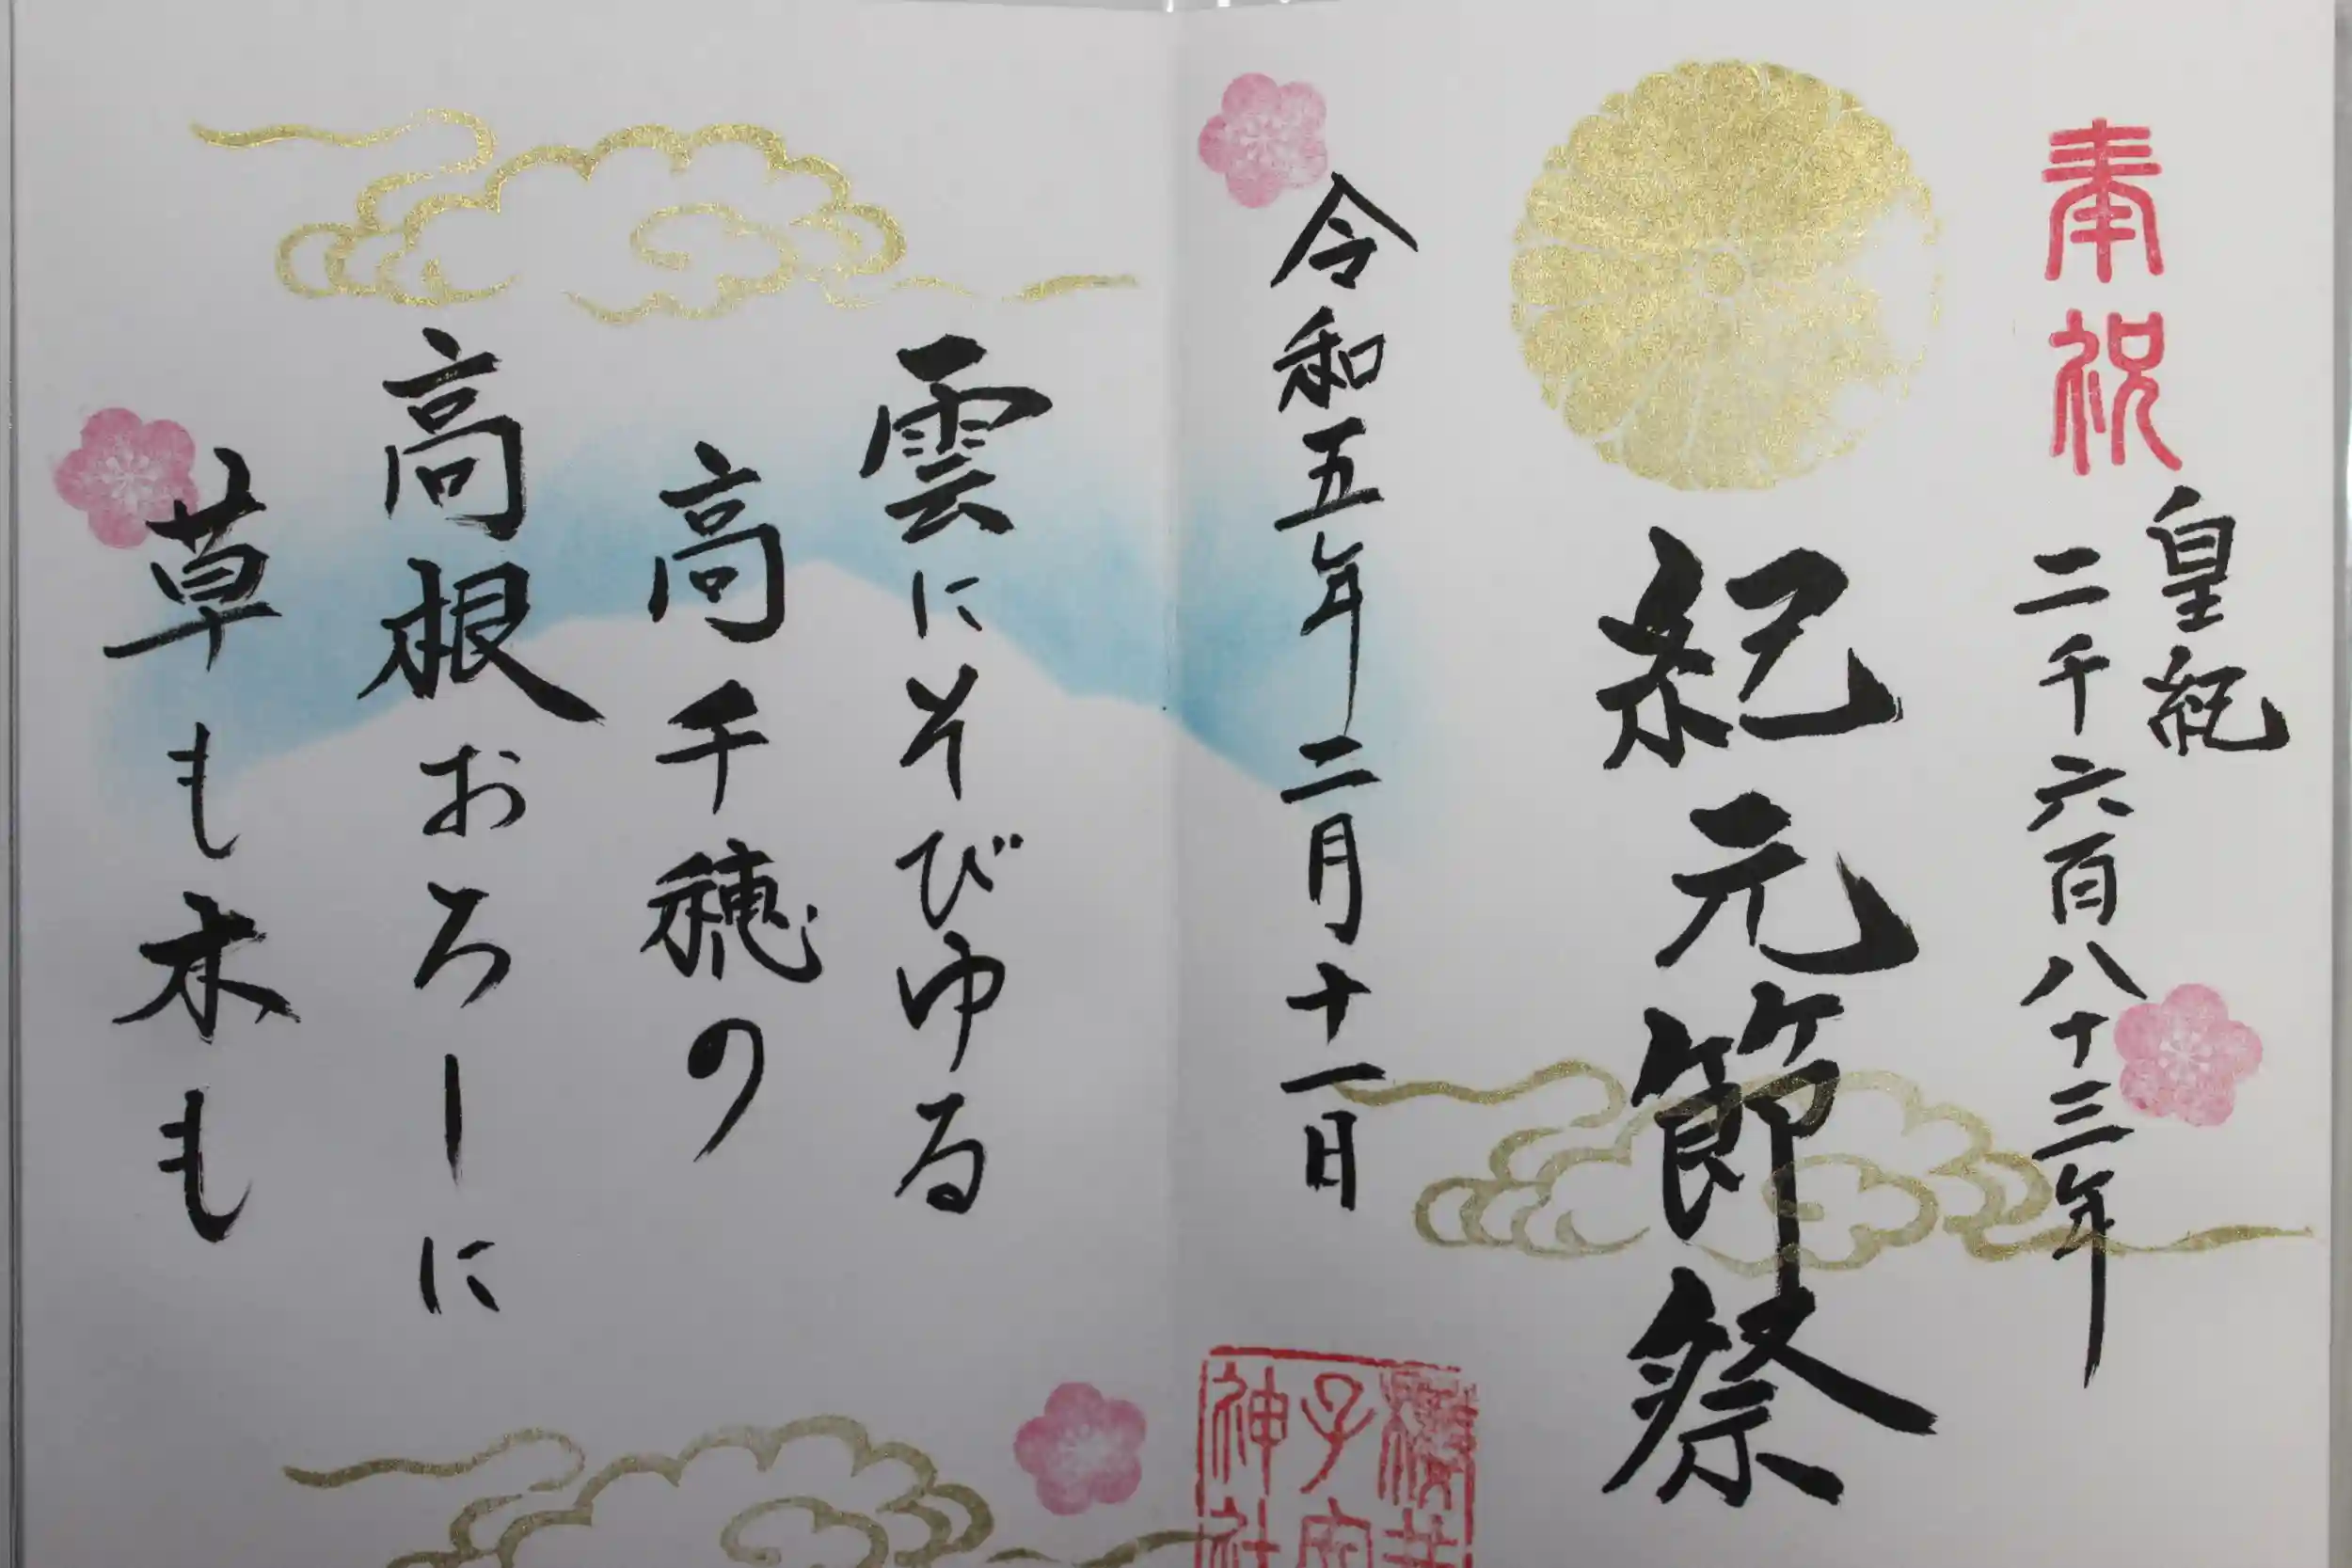 奉祝
皇紀
二千六百八十三年
紀元節祭
令和五年二月十一日
櫻井
子安
神社
雲にそびゆる
高千穂の
高根おろしに
草も木も